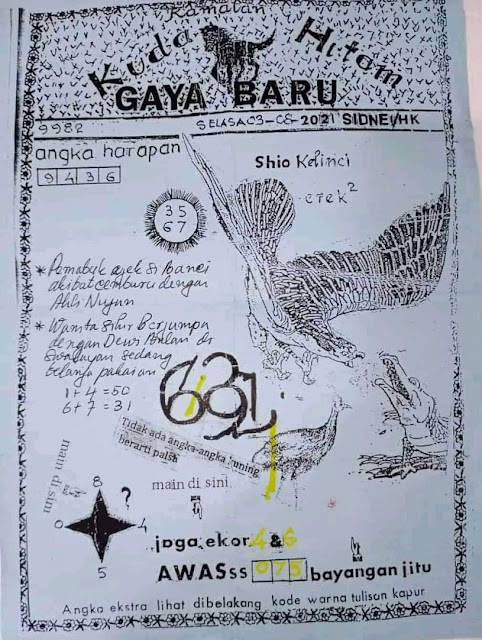 Ramalan
Kuda Hitam
GAYA BARU
9982
SELASA 03-08-2021 SIDNEI/HK
angka harapan
9 4 3 6
Shio Kelinci
erek²
35
67
* Pemabuk ajak si Banci
akibat cemburu dengan
Ahli Nujum
* Wanita sihir Berjumpa
dengan Dewi Bulan di
Swalayan sedang
belanja pakaian
1 + 4 = 50
6 + 7 = 31
Tidak ada angka-angka kuning
berarti palsu
main di sini
main di sini
8
?
0
4
5
joga ekor 4 & 6
AWASss 075 bayangan jitu
Angka ekstra lihat dibelakang kode warna tulisan kapur